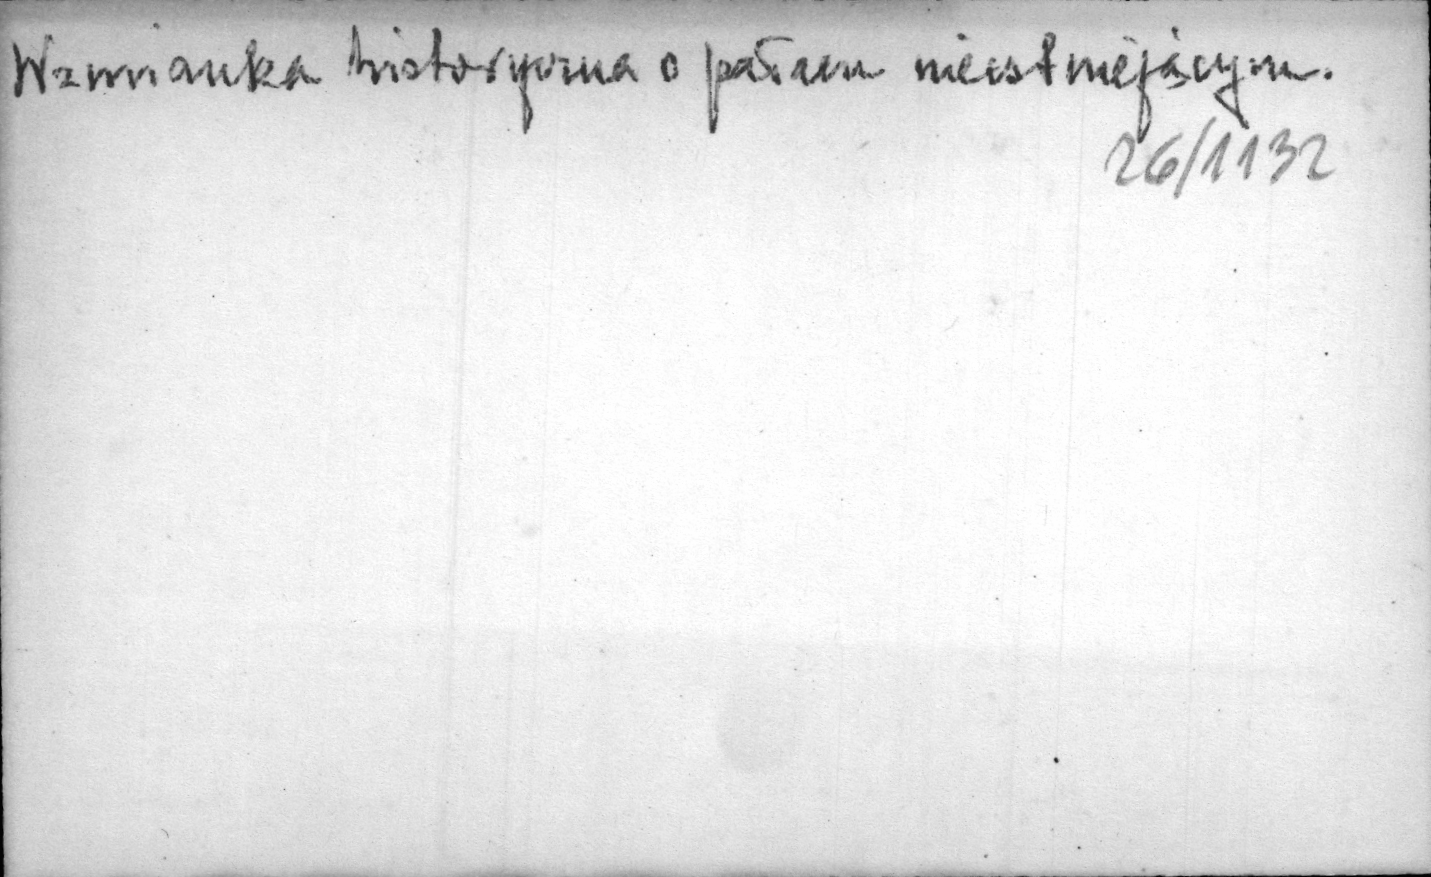 Wzmianka historyczna o pałacu nieistniejącym.
26/1132